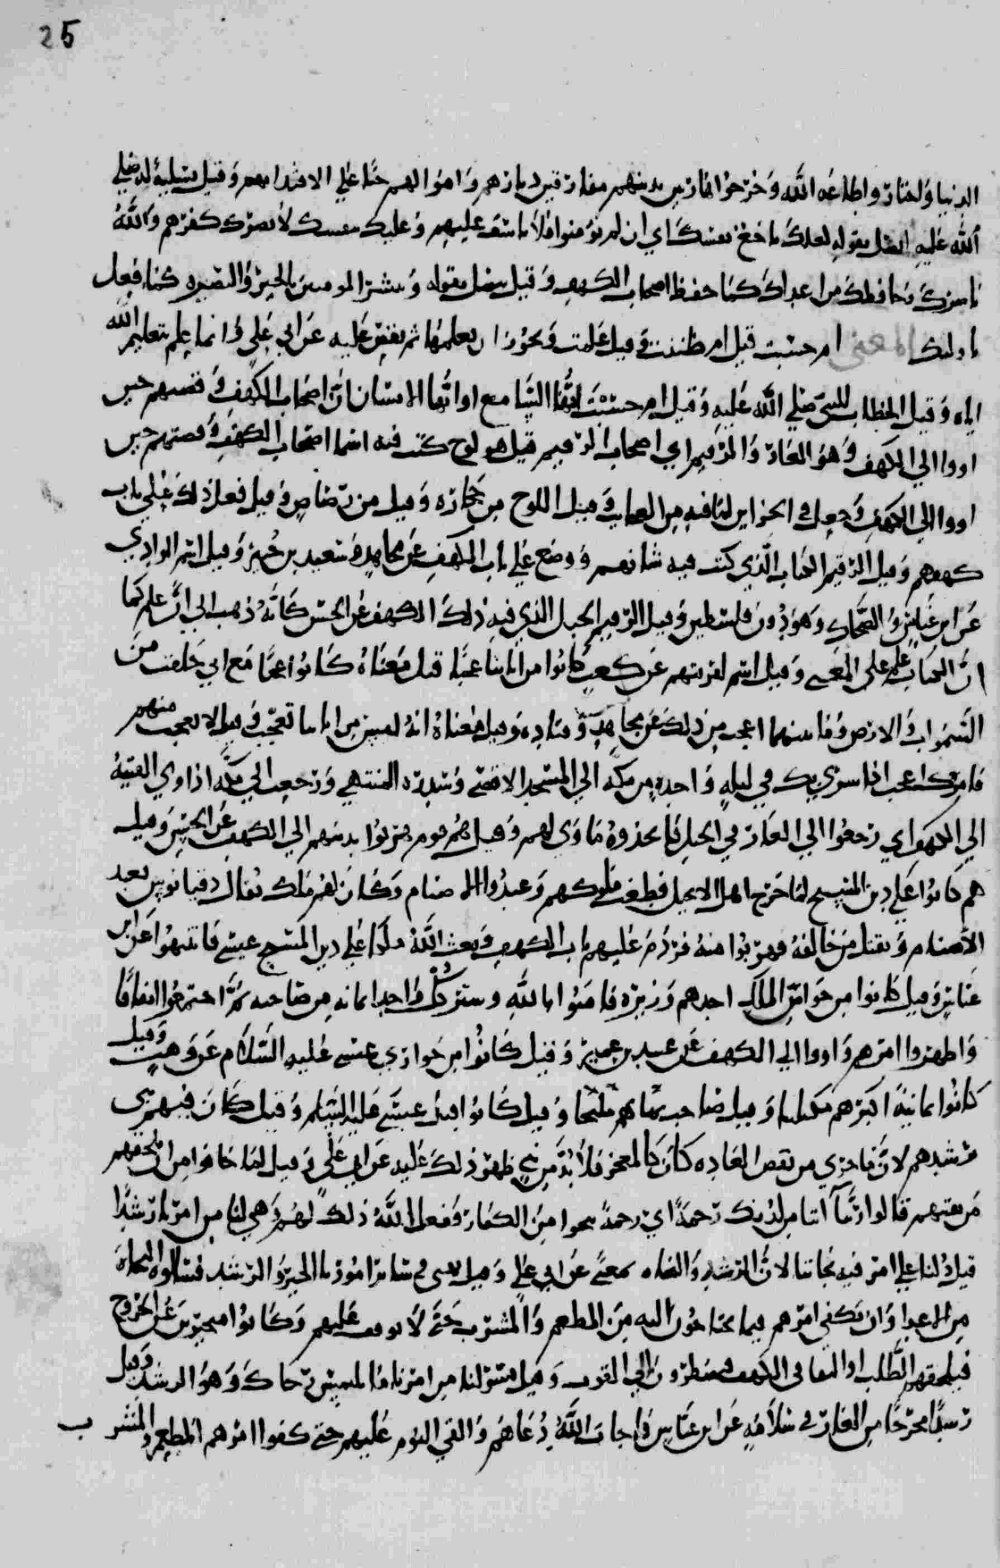 25
الدنيا والمنازل واطاعه الله وخرجوا فارين بدينهم مفارقين ديارهم وامرالهم حثا على الاقتدا بهم وقيل تسلية له صلى
الله عليه اتصل بقوله لعلك باخع نفسك اي ان لم يؤمنوا فلا تاسف عليهم وعليك بنفسك لا يضرك كفرهم والله
ناصرك وحافظك من اعدائك كما حفظ اصحاب الكهف وقيل يتصل بقوله ويبشر المومنين بالخير والنصره كما فعل
باولئك المعنى ام حسبت قيل ام ظننت وقيل علمت ويجوز ان يعلمها ثم يقص عليه عن ابي علي وانما يعلم بتعليم الله
اياه وقيل الخطاب للنبي صلى الله عليه وقيل ام حسبت ايها السامع او ايها الانسان ان اصحاب الكهف وقصتهم حين
اووا الى الكهف وهو الغار والرقيم اي اصحاب الرقيم قيل هو لوح كتب فيه اسما اصحاب الكهف وقصتهم حين
اووا الى الكهف وجعل في الخزاين لما فيه من العجايب وقيل اللوح من حجاره وقيل من رصاص وقيل فعل ذلك على باب
كهفهم وقيل الرقيم الكتاب الذي كتب فيه شانهم ووضع على باب الكهف عن مجاهد وسعيد بن جبير وقيل اسم الوادي
عن ابن عباس والضحاك وهو دون فلسطين وقيل الرقيم الجبل الذي فيه ذلك الكهف عن الحسن كانه ذهب الى ان علم كما
ان الكتاب علم على المعنى وقيل اسم لقريتهم عن كعب كانوا من اياتنا عجبا قيل معناه كانوا عجبا مع اني خلقت من
السموات والارض وما بينهما اعجب من ذلك عن مجاهد وقتاده وقيل معناه انه ليس من اياتنا تعجب وقيل لا تعجب منهم
فامرك اعجب انا اسري بك في ليلة واحدة من مكه الى المسجد الاقصى وسدره المنتهى ورجعت الى مكه اذ اوى الفتية
الى الكهف اي رجعوا الى الغار في الجبل فاتخذوه ماوى لهم وقيل هم قوم هربوا بدينهم الى الكهف عن الحسن وقيل
هم كانوا على دين المسيح لما خرج اهل الانجيل فطغت ملوكهم وعبدوا الاصنام وكان لهم ملك يقال دقيانوس يعبد
الاصنام ويقتل من خالفه فهربوا منه فردم عليهم باب الكهف وبعث الله ملكا على دين المسيح عيسى فانتبهوا عن ابن
عباس وقيل كانوا من خواص الملك احدهم وزيره فامنوا بالله وستر كل واحد ايمانه من صاحبه ثم اجتمعوا اتفاقا
واظهروا امرهم واووا الى الكهف عن عبيد بن عمير وقيل كانوا من حواري عيسى عليه السلام عن وهب وقيل
كانوا ثمانية اكبرهم مكسلمنا وقيل صاحب يمليخا وقيل كانوا قبل عيسى عليه السلام وقيل كان فيهم نبي
مرشدهم لان ما جرى من نقض العاده كان كالمعجز فلا بد من نبي ظهر ذلك عليه عن ابي علي وقيل لما خافوا من ان يلحقهم
من يفتنهم قالوا ربنا اتنا من لدنك رحمة اي رحمة ننجوا من الكفار وفعل الله ذلك لهم وهي لنا من امرنا رشدا
قيل دلنا على امر فيه نجاتنا لان الرشد والنجاه بمعنى عن ابي علي وقيل يعني في سائر امورنا بالخير والرشد فسالوه النجاة
من الاعدا وان يكفي امرهم فيما يحتاجون اليه من المطعم والمشرب حتى لا يوقف عليهم وكانوا متحيرين عن الخروج
فيلحقهم الطلب او البقا في الكهف فيضطرون الى القوت وقيل يسر لنا من امرنا ما نلتمس من رضاك وهو الرشد وقيل
رشدا مخرجا من الغار في سلامة عن ابن عباس فاجاب الله دعاهم والقى النوم عليهم حتى كفوا امرهم المطعم والمشرب